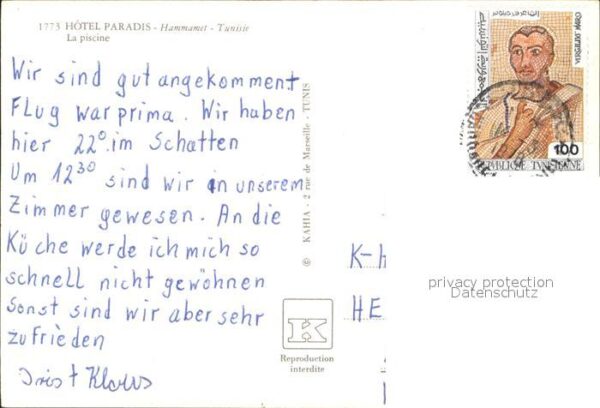 1773 HÔTEL PARADIS - Hammamet - Tunisie
La piscine
Wir sind gut angekomment
Flug war prima. Wir haben
hier 22° im Schatten
Um 12³⁰ sind wir in unserem
Zimmer gewesen. An die
Küche werde ich mich so
schnell nicht gewöhnen
Sonst sind wir aber sehr
zufrieden
Klaus
© KAHIA - 2 rue de Marseille - TUNIS
K
Reproduction
interdite
VIRGILIUS MARO
الجمهورية التونسية
100
REPUBLIQUE TUNISIENNE
K-H
HE
privacy protection
Datenschutz